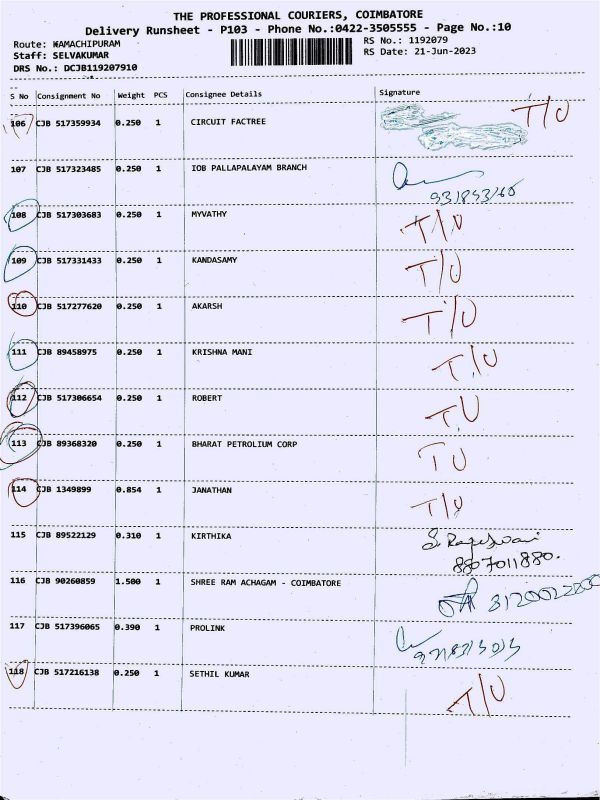 THE PROFESSIONAL COURIERS, COIMBATORE
Delivery Runsheet - P103 - Phone No.:0422-3505555 - Page No.:10
Route: WAMACHIPURAM
RS No.: 1192079
Staff: SELVAKUMAR
RS Date: 21-Jun-2023
DRS No.: DCJB119207910
S No Consignment No Weight PCS Consignee Details Signature
106 CJB 517359934 0.250 1 CIRCUIT FACTREE T/U
107 CJB 517323485 0.250 1 IOB PALLAPALAYAM BRANCH
108 CJB 517303683 0.250 1 MYVATHY T/U
109 CJB 517331433 0.250 1 KANDASAMY T/U
110 CJB 517277620 0.250 1 AKARSH T/U
111 CJB 89458975 0.250 1 KRISHNA MANI T/U
112 CJB 517306654 0.250 1 ROBERT T/U
113 CJB 89368320 0.250 1 BHARAT PETROLIUM CORP TU
114 CJB 1349899 0.854 1 JANATHAN T/U
115 CJB 89522129 0.310 1 KIRTHIKA
8807011880.
116 CJB 90260859 1.500 1 SHREE RAM ACHAGAM - COIMBATORE
117 CJB 517396065 0.390 1 PROLINK
118 CJB 517216138 0.250 1 SETHIL KUMAR T/U